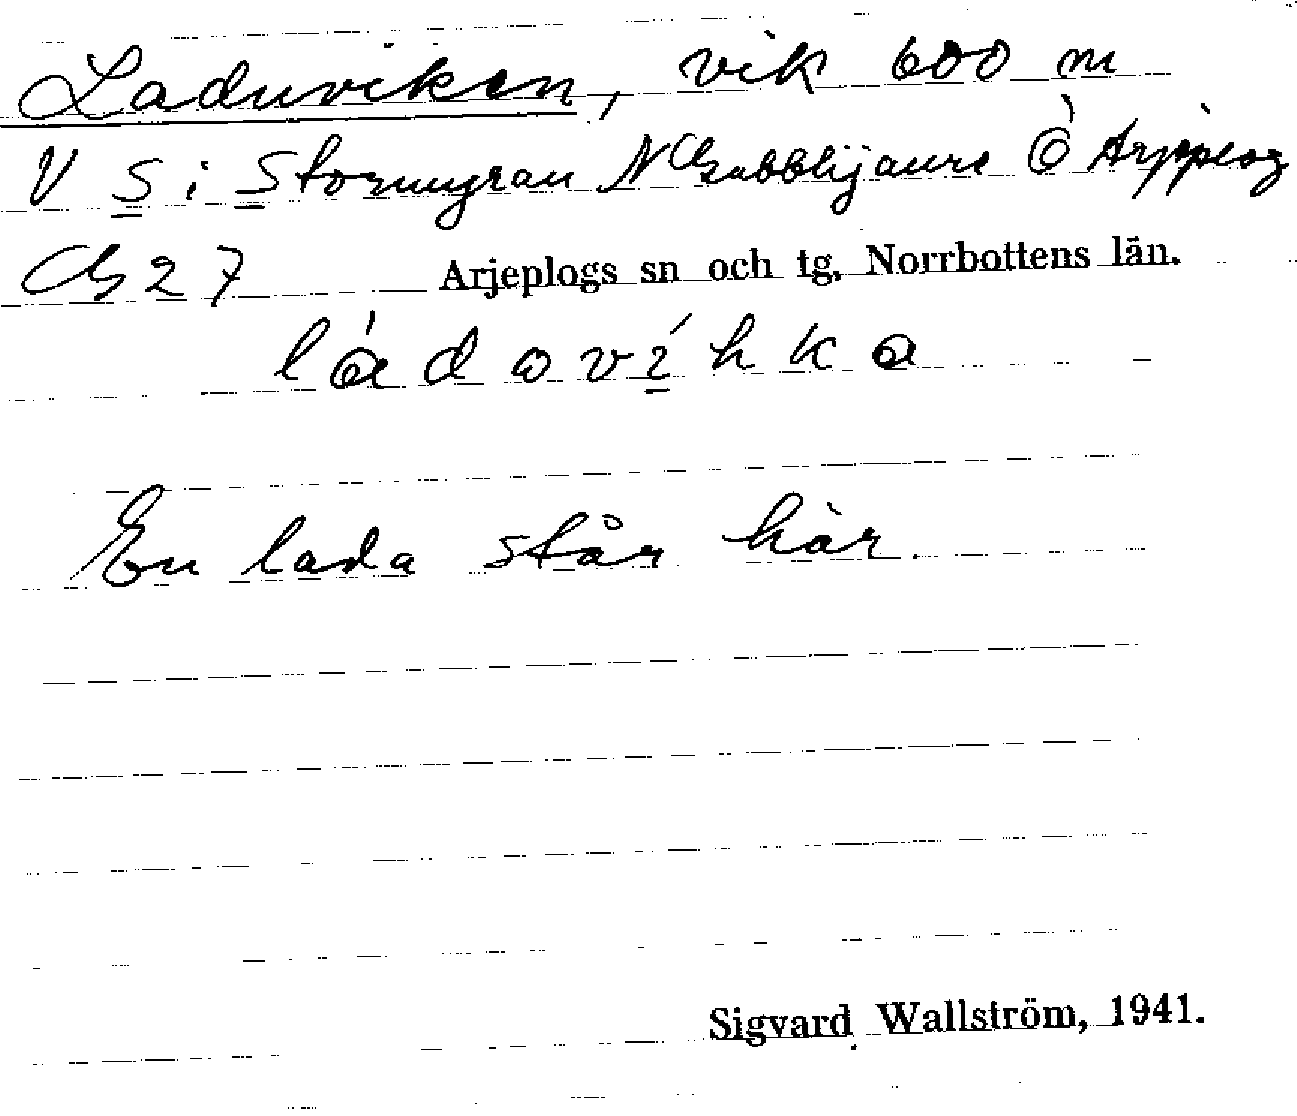 Laduviken, vik 600 m
V S i Stormyran N Gubblijaure Ö Arjeplog
G 27 Arjeplogs sn och tg, Norrbottens län.
ládovíhka
En lada står här.
Sigvard Wallström, 1941.